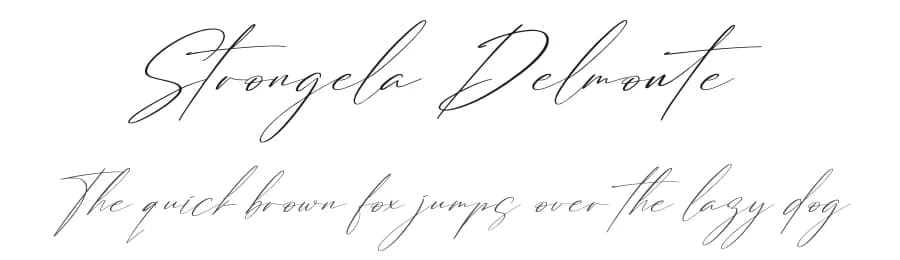 Strongela Delmonte
The quick brown fox jumps over the lazy dog